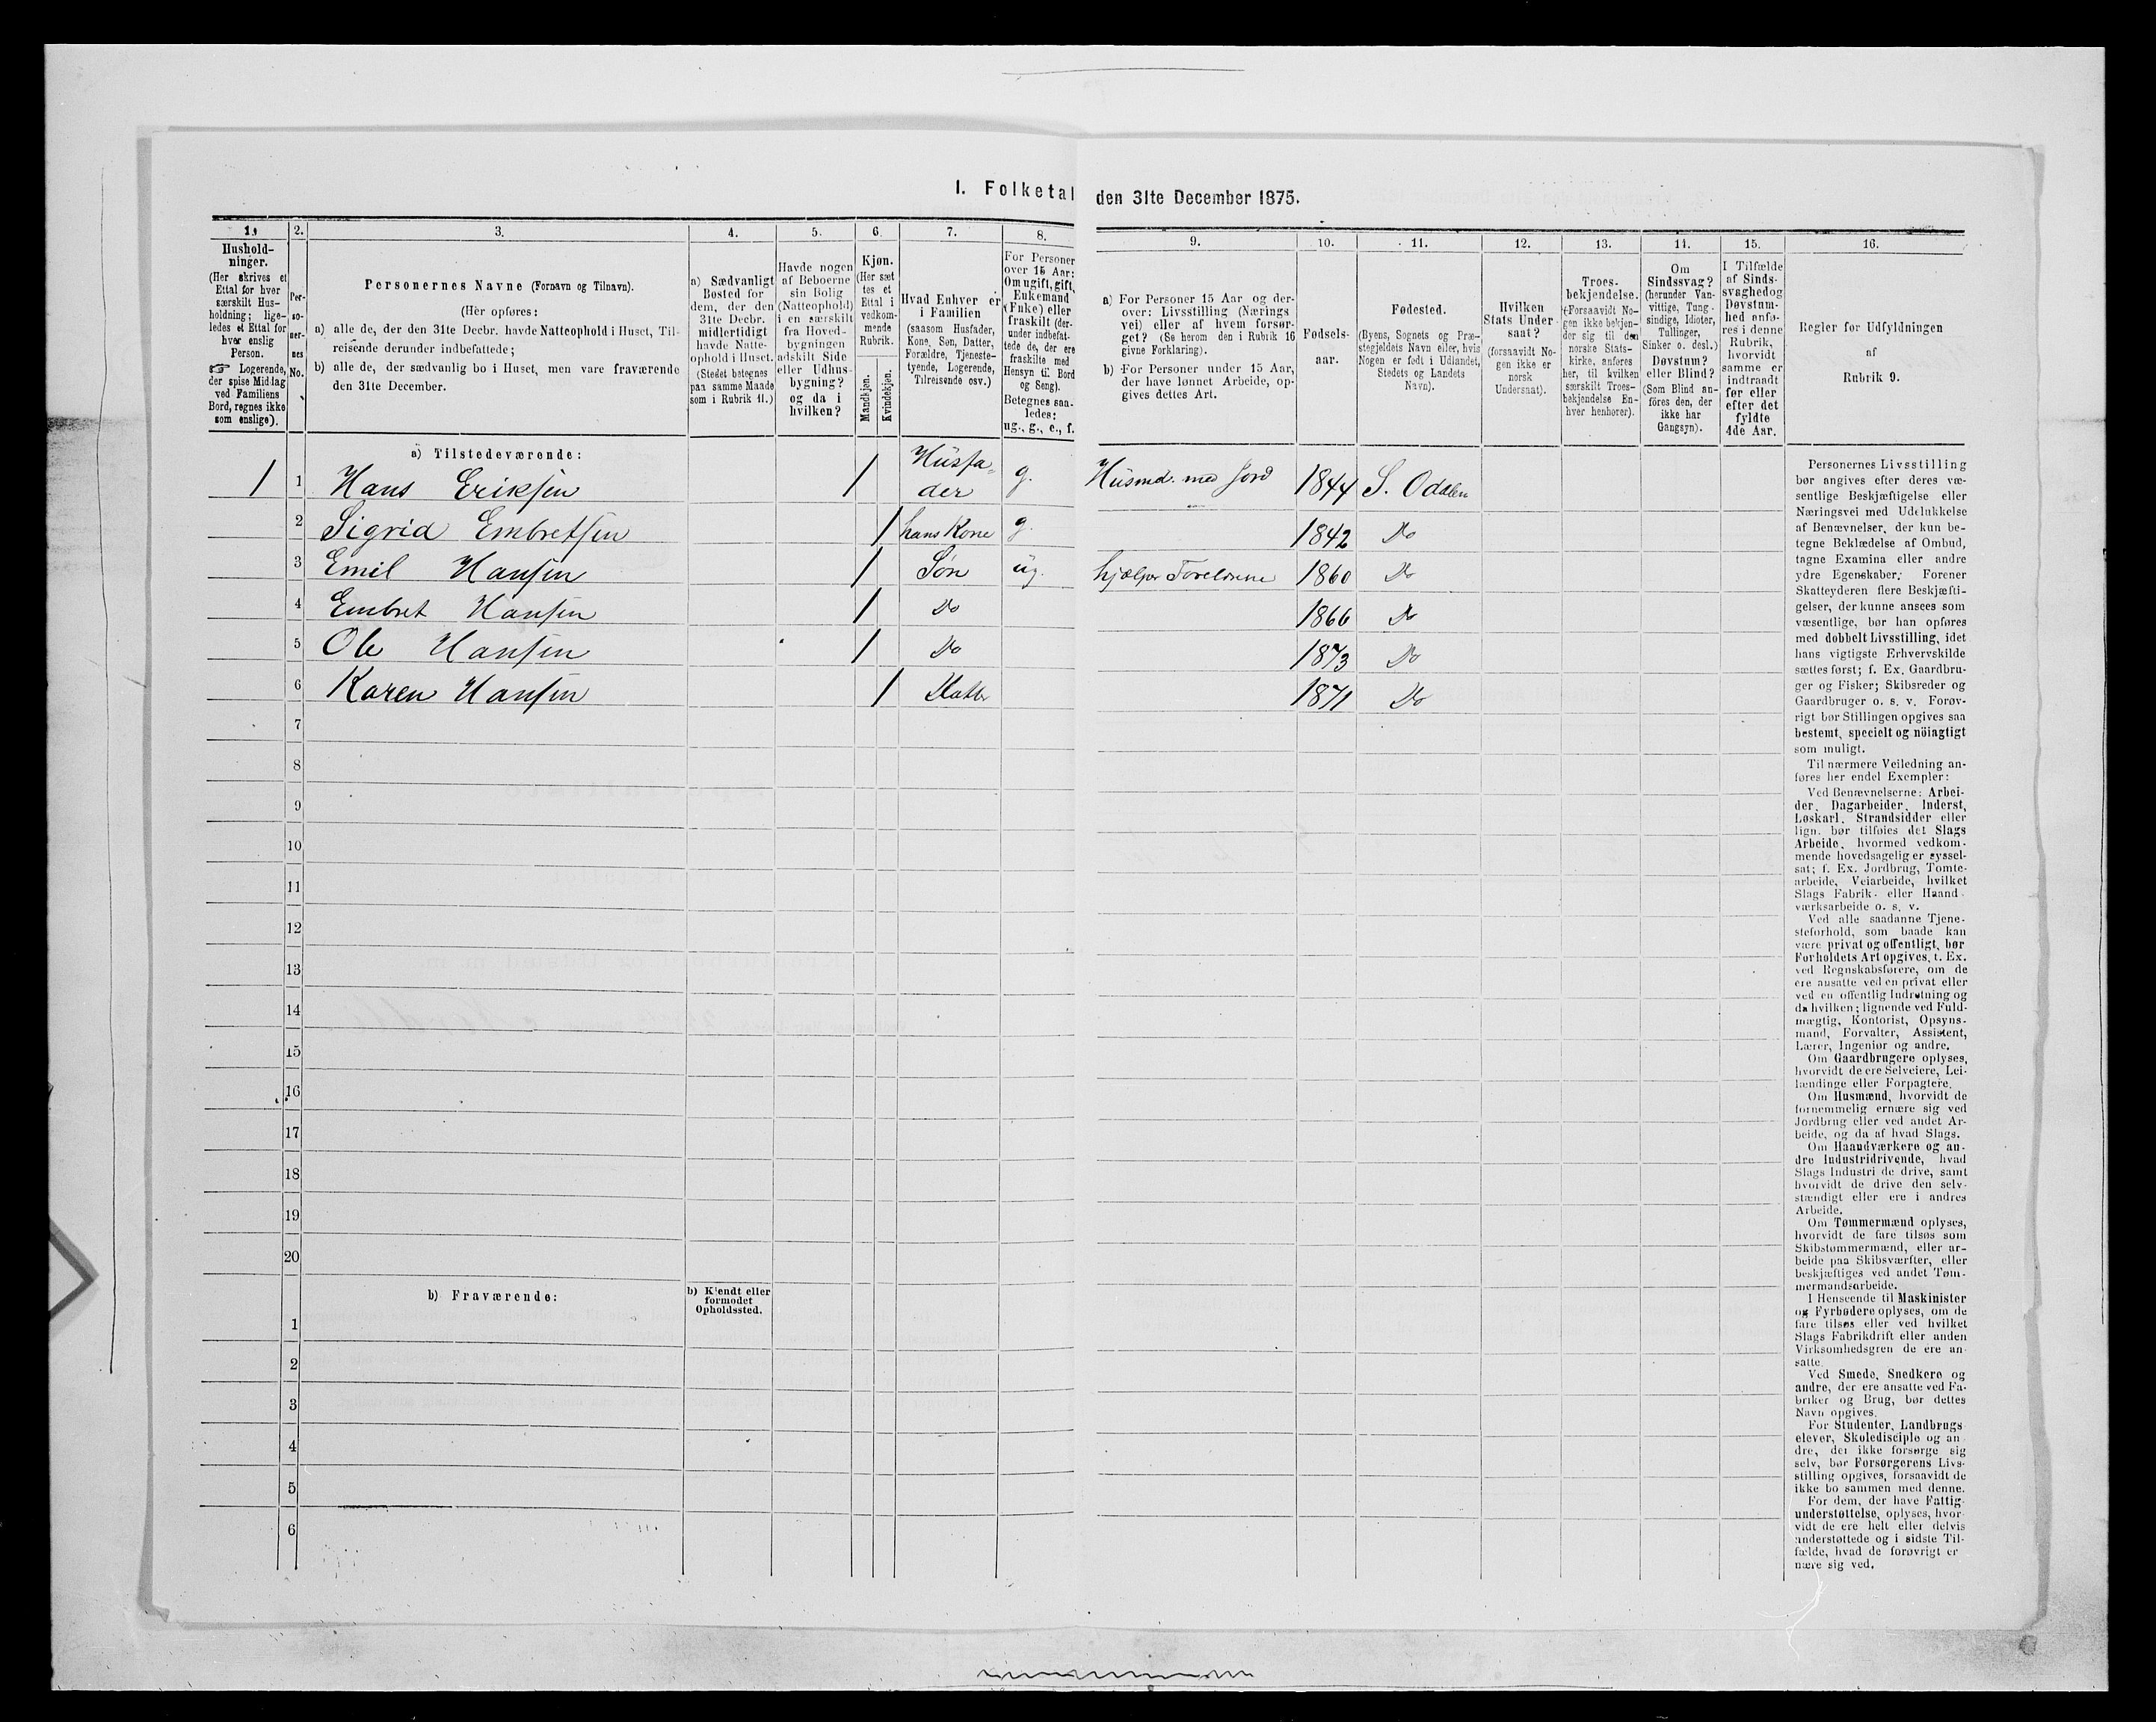 I. Folketal den 31te December 1875.
1.
Hushold-
ninger.
(Her skrives et
Ettal for hver
særskilt Hus-
holdning; lige-
ledes et Ettal for
hver enslig
Person.
☞ Logerende,
der spise Middag
ved Familiens
Bord, regnes ikke
som enslige).
2.
Per-
so-
ner-
nes
No.
3.
Personernes Navne (Fornavn og Tilnavn).
(Her opføres:
a) alle de, der den 31te Decbr. havde Natteophold i Huset, Til-
reisende derunder indbefattede;
b) alle de, der sædvanlig bo i Huset, men vare fraværende
den 31te December.
4.
a) Sædvanligt
Bosted for
dem, der den
31te Decbr.
midlertidigt
havde Natte-
ophold i Huset.
(Stedet betegnes
paa samme Maade
som i Rubrik 11.)
5.
Havde nogen
af Beboerne
sin Bolig
(Natteophold)
i en særskilt
fra Hoved-
bygningen
adskilt Side
eller Udhus-
bygning?
og da i
hvilken?
6.
Kjøn.
(Her sæt
tes et
Ettal i
vedkom-
mende
Rubrik.
Mandkjøn.
Kvindekjøn.
7.
Hvad Enhver er
i Familien
(saasom Husfader,
Kone, Søn, Datter,
Forældre, Tjeneste-
tyende, Logerende,
Tilreisende osv.)
8.
For Personer
over 15 Aar:
Om ugift, gift,
Enkemand
(Enke) eller
fraskilt (der-
under indbefat-
tede de, der ere
fraskilte med
Hensyn til Bord
og Seng).
Betegnes saa-
ledes:
ug., g., e., f.
9.
a) For Personer 15 Aar og der-
over: Livsstilling (Nærings
vei) eller af hvem forsør-
get? (Se herom den i Rubrik 16
givne Forklaring).
b) For Personer under 15 Aar,
der have lønnet Arbeide, op-
gives dettes Art.
10.
Fødsels-
aar.
11.
Fødested.
(Byens, Sognets og Præ-
stegjeldets Navn eller, hvis
Nogen er født i Udlandet,
Stedets og Landets
Navn).
12.
Hvilken
Stats Under
saat?
(forsaavidt No-
gen ikke er
norsk
Undersaat).
13.
Troes-
bekjendelse.
(Forsaavidt No-
gen ikke bekjen-
der sig til den
norske Stats-
kirke, anføres
her, til hvilken
særskilt Troes-
bekjendelse En-
hver henhører).
14.
Om
Sindssvag?
(herunder Van-
vittige, Tung-
sindige, Idioter,
Tullinger,
Sinker o. desl.)
Døvstum?
eller Blind?
(Som Blind an-
føres den, der
ikke har
Gangsyn).
15.
I Tilfælde
af Sinds-
svaghed og
Døvstum-
hed anfø-
res i denne
Rubrik,
hvorvidt
samme er
indtraadt
før eller
efter det
fyldte
4de Aar.
16.
Regler for Udfyldningen
af
Rubrik 9.
a) Tilstedeværende:
1 1 Hans Eriksen 1 Husfa-
der g. Husmd. med Jord 1844 S. Odalen
2 Sigrid Embretsen 1 hans Kone g. 1842 Do
3 Emil Hansen 1 Søn ug. hjælper Foreldrene 1860 Do
4 Embret Hansen 1 Do 1866 Do
5 Ole Hansen 1 Do 1873 Do
6 Karen Hansen 1 Datter 1871 Do
7
8
9
10
11
12
13
14
15
16
17
18
19
20
b) Fraværende:
b) Kjendt eller
formodet
Opholdssted.
1
2
3
4
5
6
Personernes Livsstilling
bør angives efter deres væ-
sentlige Beskjæftigelse eller
Næringsvei med Udelukkelse
af Benævnelser, der kun be-
tegne Beklædelse af Ombud,
tagne Examina eller andre
ydre Egenskaber. Forener
Skatteyderen flere Beskjæfti-
gelser, der kunne ansees som
væsentlige, bør han opføres
med dobbelt Livsstilling, idet
hans vigtigste Erhvervskilde
sættes først; f. Ex. Gaardbru-
ger og Fisker; Skibsreder og
Gaardbruger o. s. v. Forøv-
rigt bør Stillingen opgives saa
bestemt, specielt og nöiagtigt
som muligt.
Til nærmere Veiledning an-
føres her endel Exempler:
Ved Benævnelserne: Arbei-
der, Dagarbeider, Inderst,
Løskarl, Strandsidder eller
lign. bør tilføies det Slags
Arbeide, hvormed vedkom-
mende hovedsagelig er syssel-
sat; f. Ex. Jordbrug, Tomte-
arbeide, Veiarbeide, hvilket
Slags Fabrik- eller Haand-
værksarbeide o. s. v.
Ved alle saadanne Tjene-
steforhold, som baade kan
være privat og offentligt, bør
Forholdets Art opgives, t. Ex.
ved Regnskabsførere, om de
ere ansatte ved en privat eller
ved en offentlig Indretning og
da hvilken; lignende ved Fuld-
mægtig, Kontorist, Opsyns-
mand, Forvalter, Assistent,
Lærer, Ingeniør og andre.
Om Gaardbrugere oplyses,
hvorvidt de ere Selveiere, Lei-
lændinge eller Forpagtere.
Om Husmænd, hvorvidt de
fornemmelig ernære sig ved
Jordbrug eller ved andet Ar-
beide, og da af hvad Slags.
Om Haandværkere og an-
dre Industridrivende, hvad
Slags Industri de drive, samt
hvorvidt de drive den selv-
stændigt eller ere i andres
Arbeide.
Om Tømmermænd oplyses,
hvorvidt de fare tilsøs som
Skibstømmermænd, eller ar-
beide paa Skibsværfter, eller
beskjæftiges ved andet Tøm-
mermandsarbeide.
I Henseende til Maskinister
og Fyrbødere oplyses, om de
fare tilsøs eller ved hvilket
Slags Fabrikdrift eller anden
Virksomhedsgren de ere an-
satte.
Ved Smede, Snedkere og
andre, der ere ansatte ved Fa-
briker og Brug, bør dettes
Navn opgives.
For Studenter, Landbrugs
elever, Skoledisciple og an
dre, der ikke forsørge sig
selv, bør Forsørgerens Livs-
stilling opgives, forsaavidt de
ikke bo sammen med denne.
For dem, der have Fattig-
understøttelse, oplyses, hvor-
vidt de ere helt eller delvis
understøttede og i sidste Til-
fælde, hvad de forøvrigt er
nære sig ved.